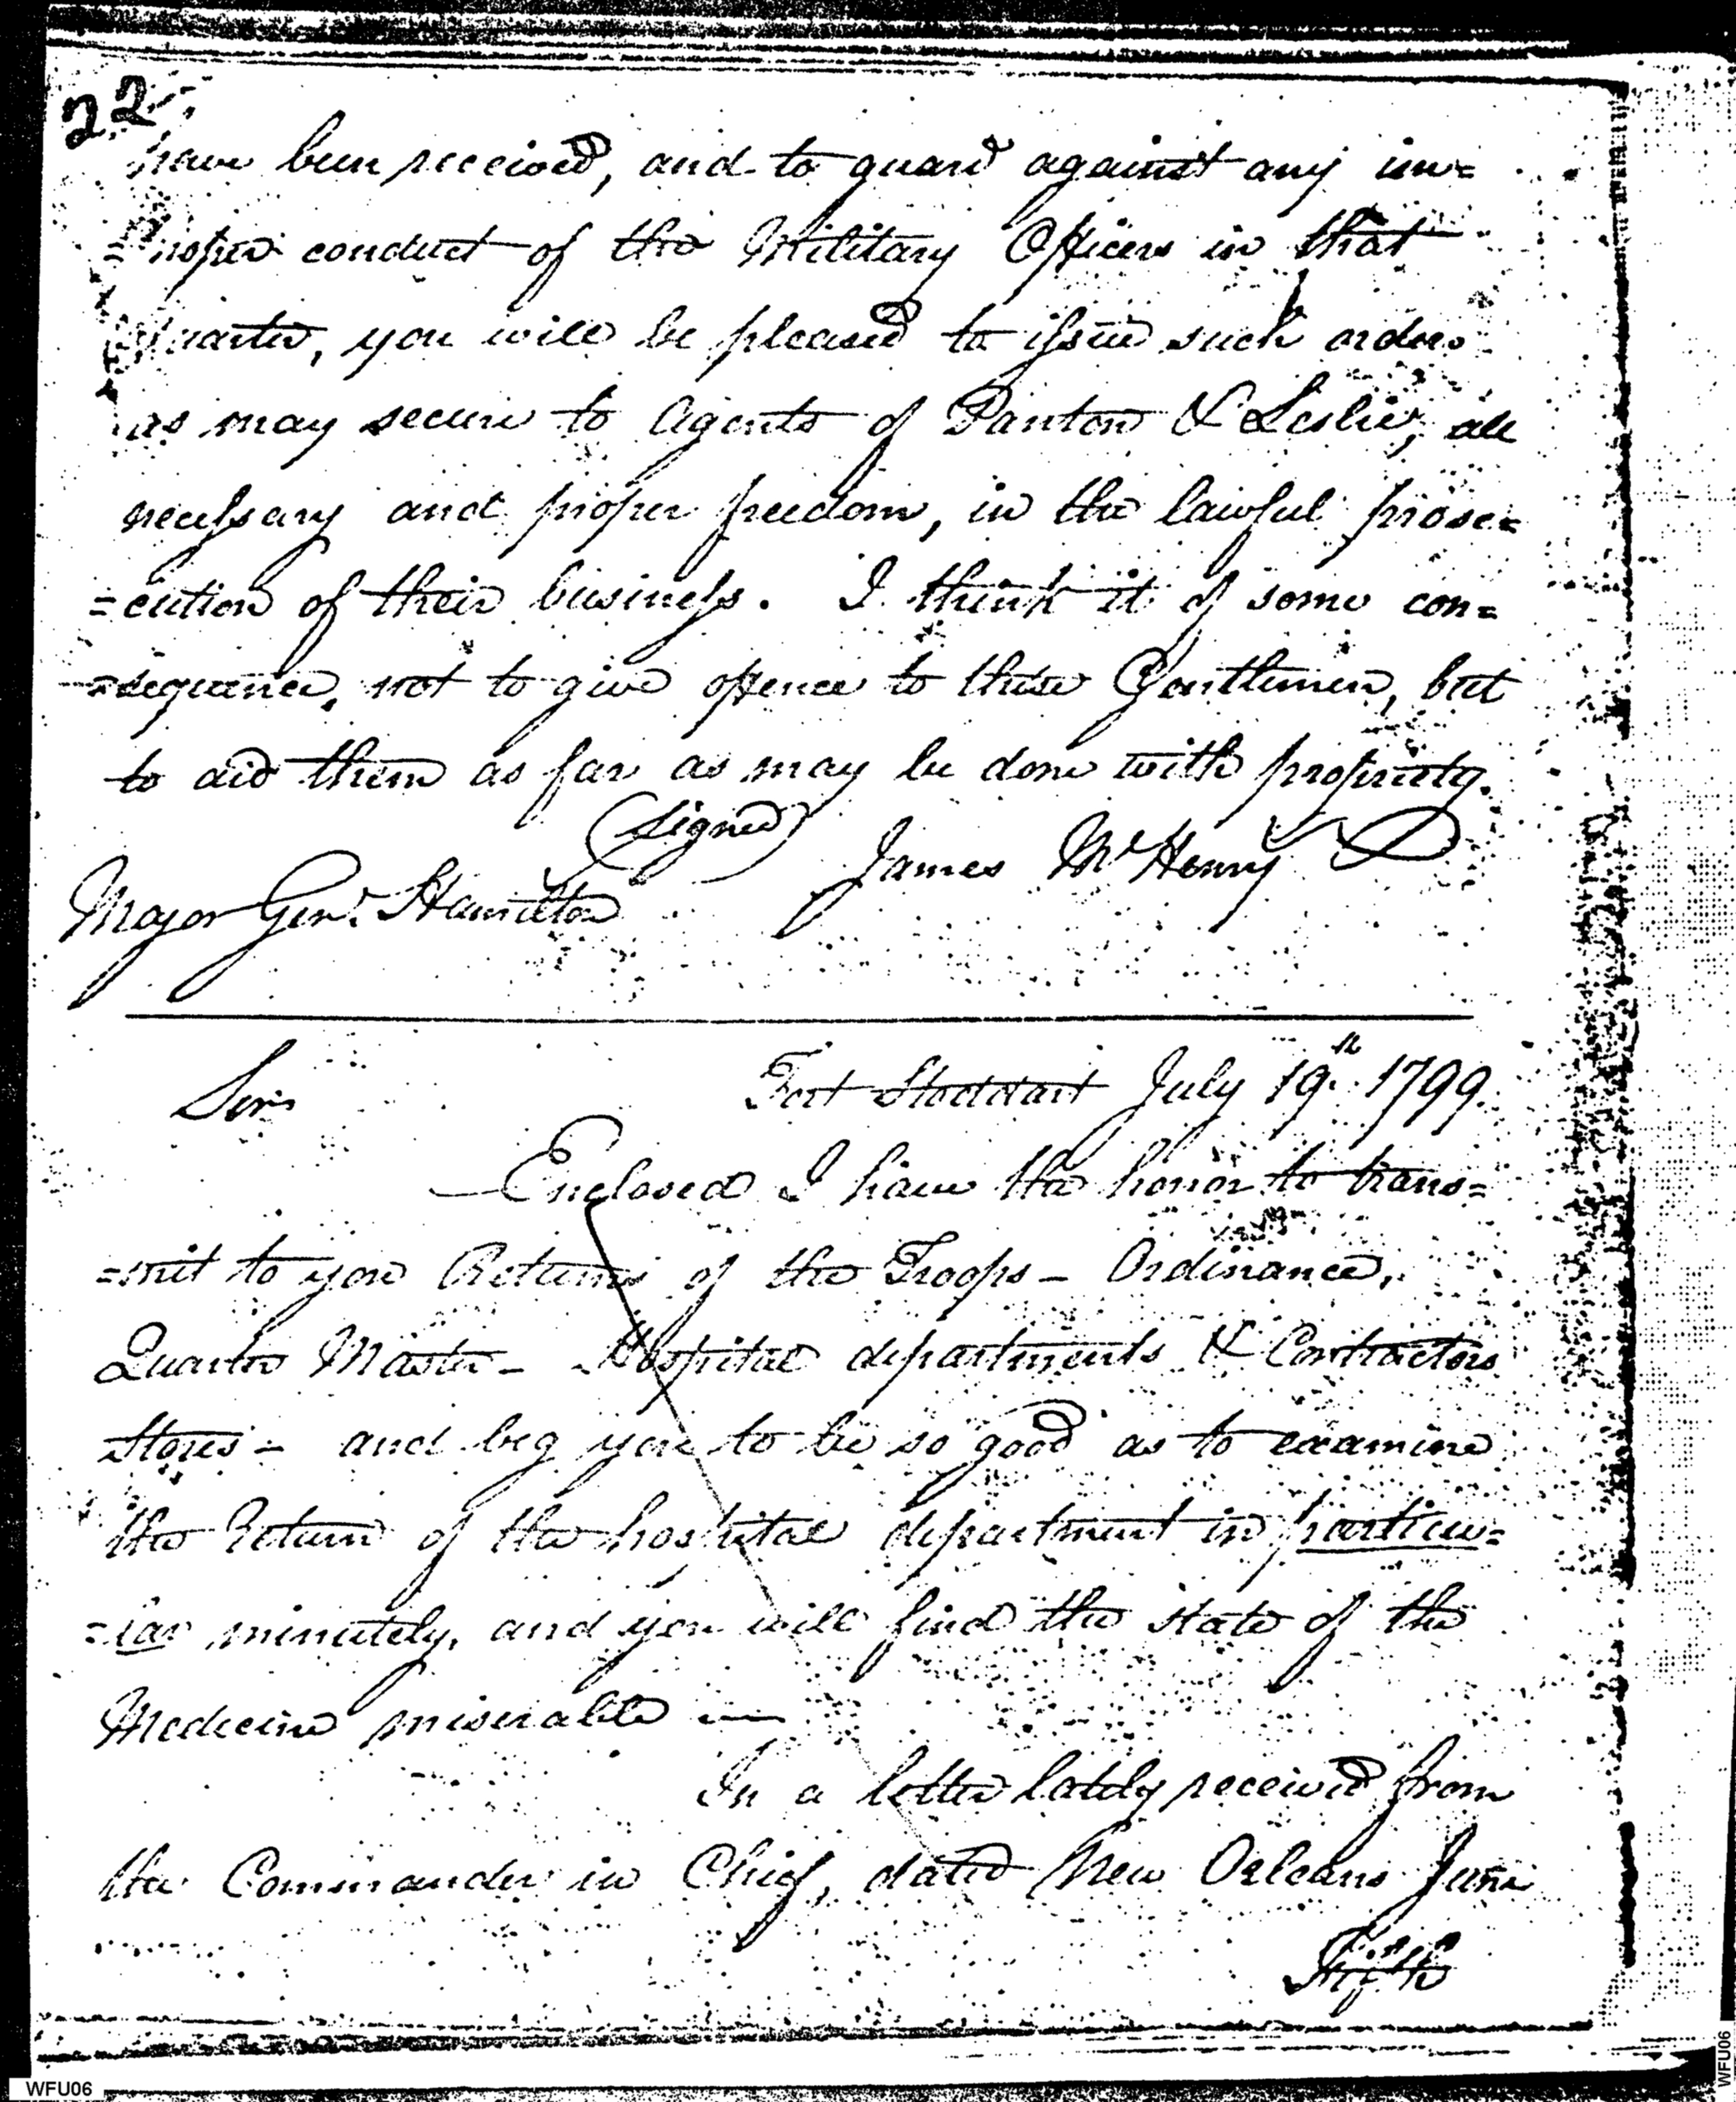 22
have been received, and to guard against any im=
=proper conduct of the Military Officers in that
quarter, you will be pleased to issue such orders
as may secure to Agents of Panton & Leslie, all
necessary and proper freedom, in the lawful prose=
=cution of their business. I think it of some con=
=sequence, not to give offence to these Gentlemen, but
to aid them as far as may be done with propriety.
(signed) James McHenry
Major Genl. Hamilton
Sir Fort Stoddart July 19th 1799.
Enclosed I have the honor to trans=
=mit to you Returns of the Troops - Ordinance,
Quarter Master - Hospital departments & Contractors
Stores - and beg you to be so good as to examine
the Return of the hospital department in particu=
=lar minutely, and you will find the state of the
Medicine miserable —
In a letter lately received from
the Commander in Chief, dated New Orleans June
Fifth
WFU06
WFU06